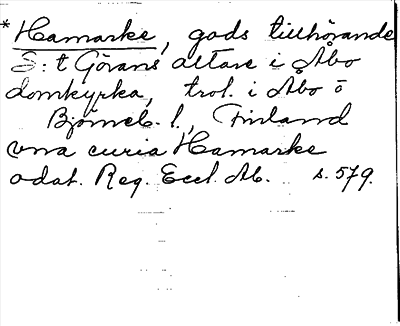 * Hamarke, gods tillhörande
S:t Görans altare i Åbo
domkyrka, trol. i Åbo o
Björneb. l., Finland
vna curia Hamarke
odat. Reg. Eccl. Ab. s. 579.